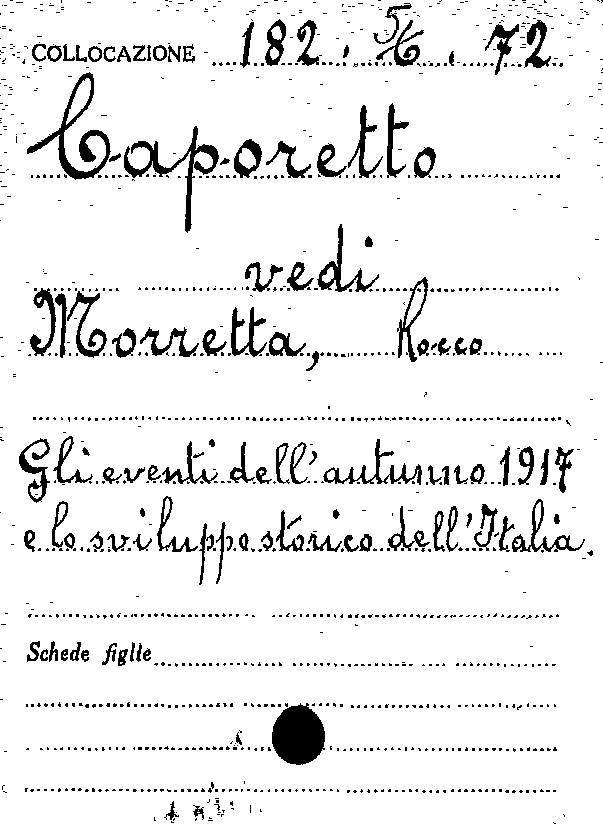 COLLOCAZIONE 182. 5/6. 72
Caporetto
vedi
Morretta, Rocco
Gli eventi dell'autunno 1917
e lo sviluppo storico dell'Italia.
Schede figlie